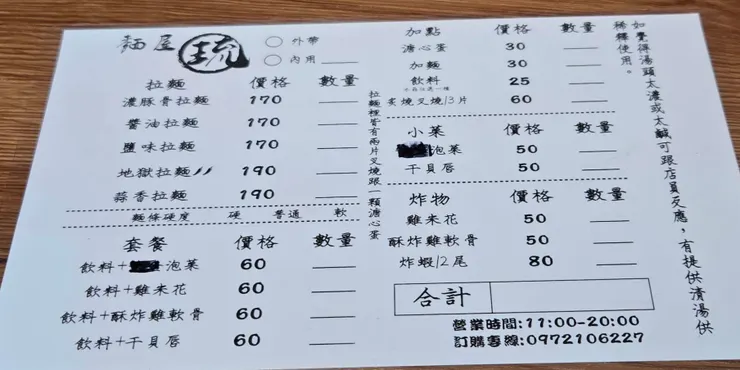 麵屋 琉
外帶
內用
拉麵 價格 數量
濃豚骨拉麵 170
醬油拉麵 170
鹽味拉麵 170
地獄拉麵 190
蒜香拉麵 190
麵條硬度 硬 普通 軟
套餐 價格 數量
飲料+泡菜 60
飲料+雞米花 60
飲料+酥炸雞軟骨 60
飲料+干貝唇 60
拉麵裡皆有兩片叉燒跟一顆溏心蛋
加點 價格 數量
溏心蛋 30
加麵 30
飲料 25
炙燒叉燒/3片 60
小菜 價格 數量
泡菜 50
干貝唇 50
炸物 價格 數量
雞米花 50
酥炸雞軟骨 50
炸蝦/2尾 80
合計
營業時間:11:00-20:00
訂購專線:0972106227
如覺得湯頭太濃或太鹹可跟店員反應,有提供清湯供
稀釋使用。